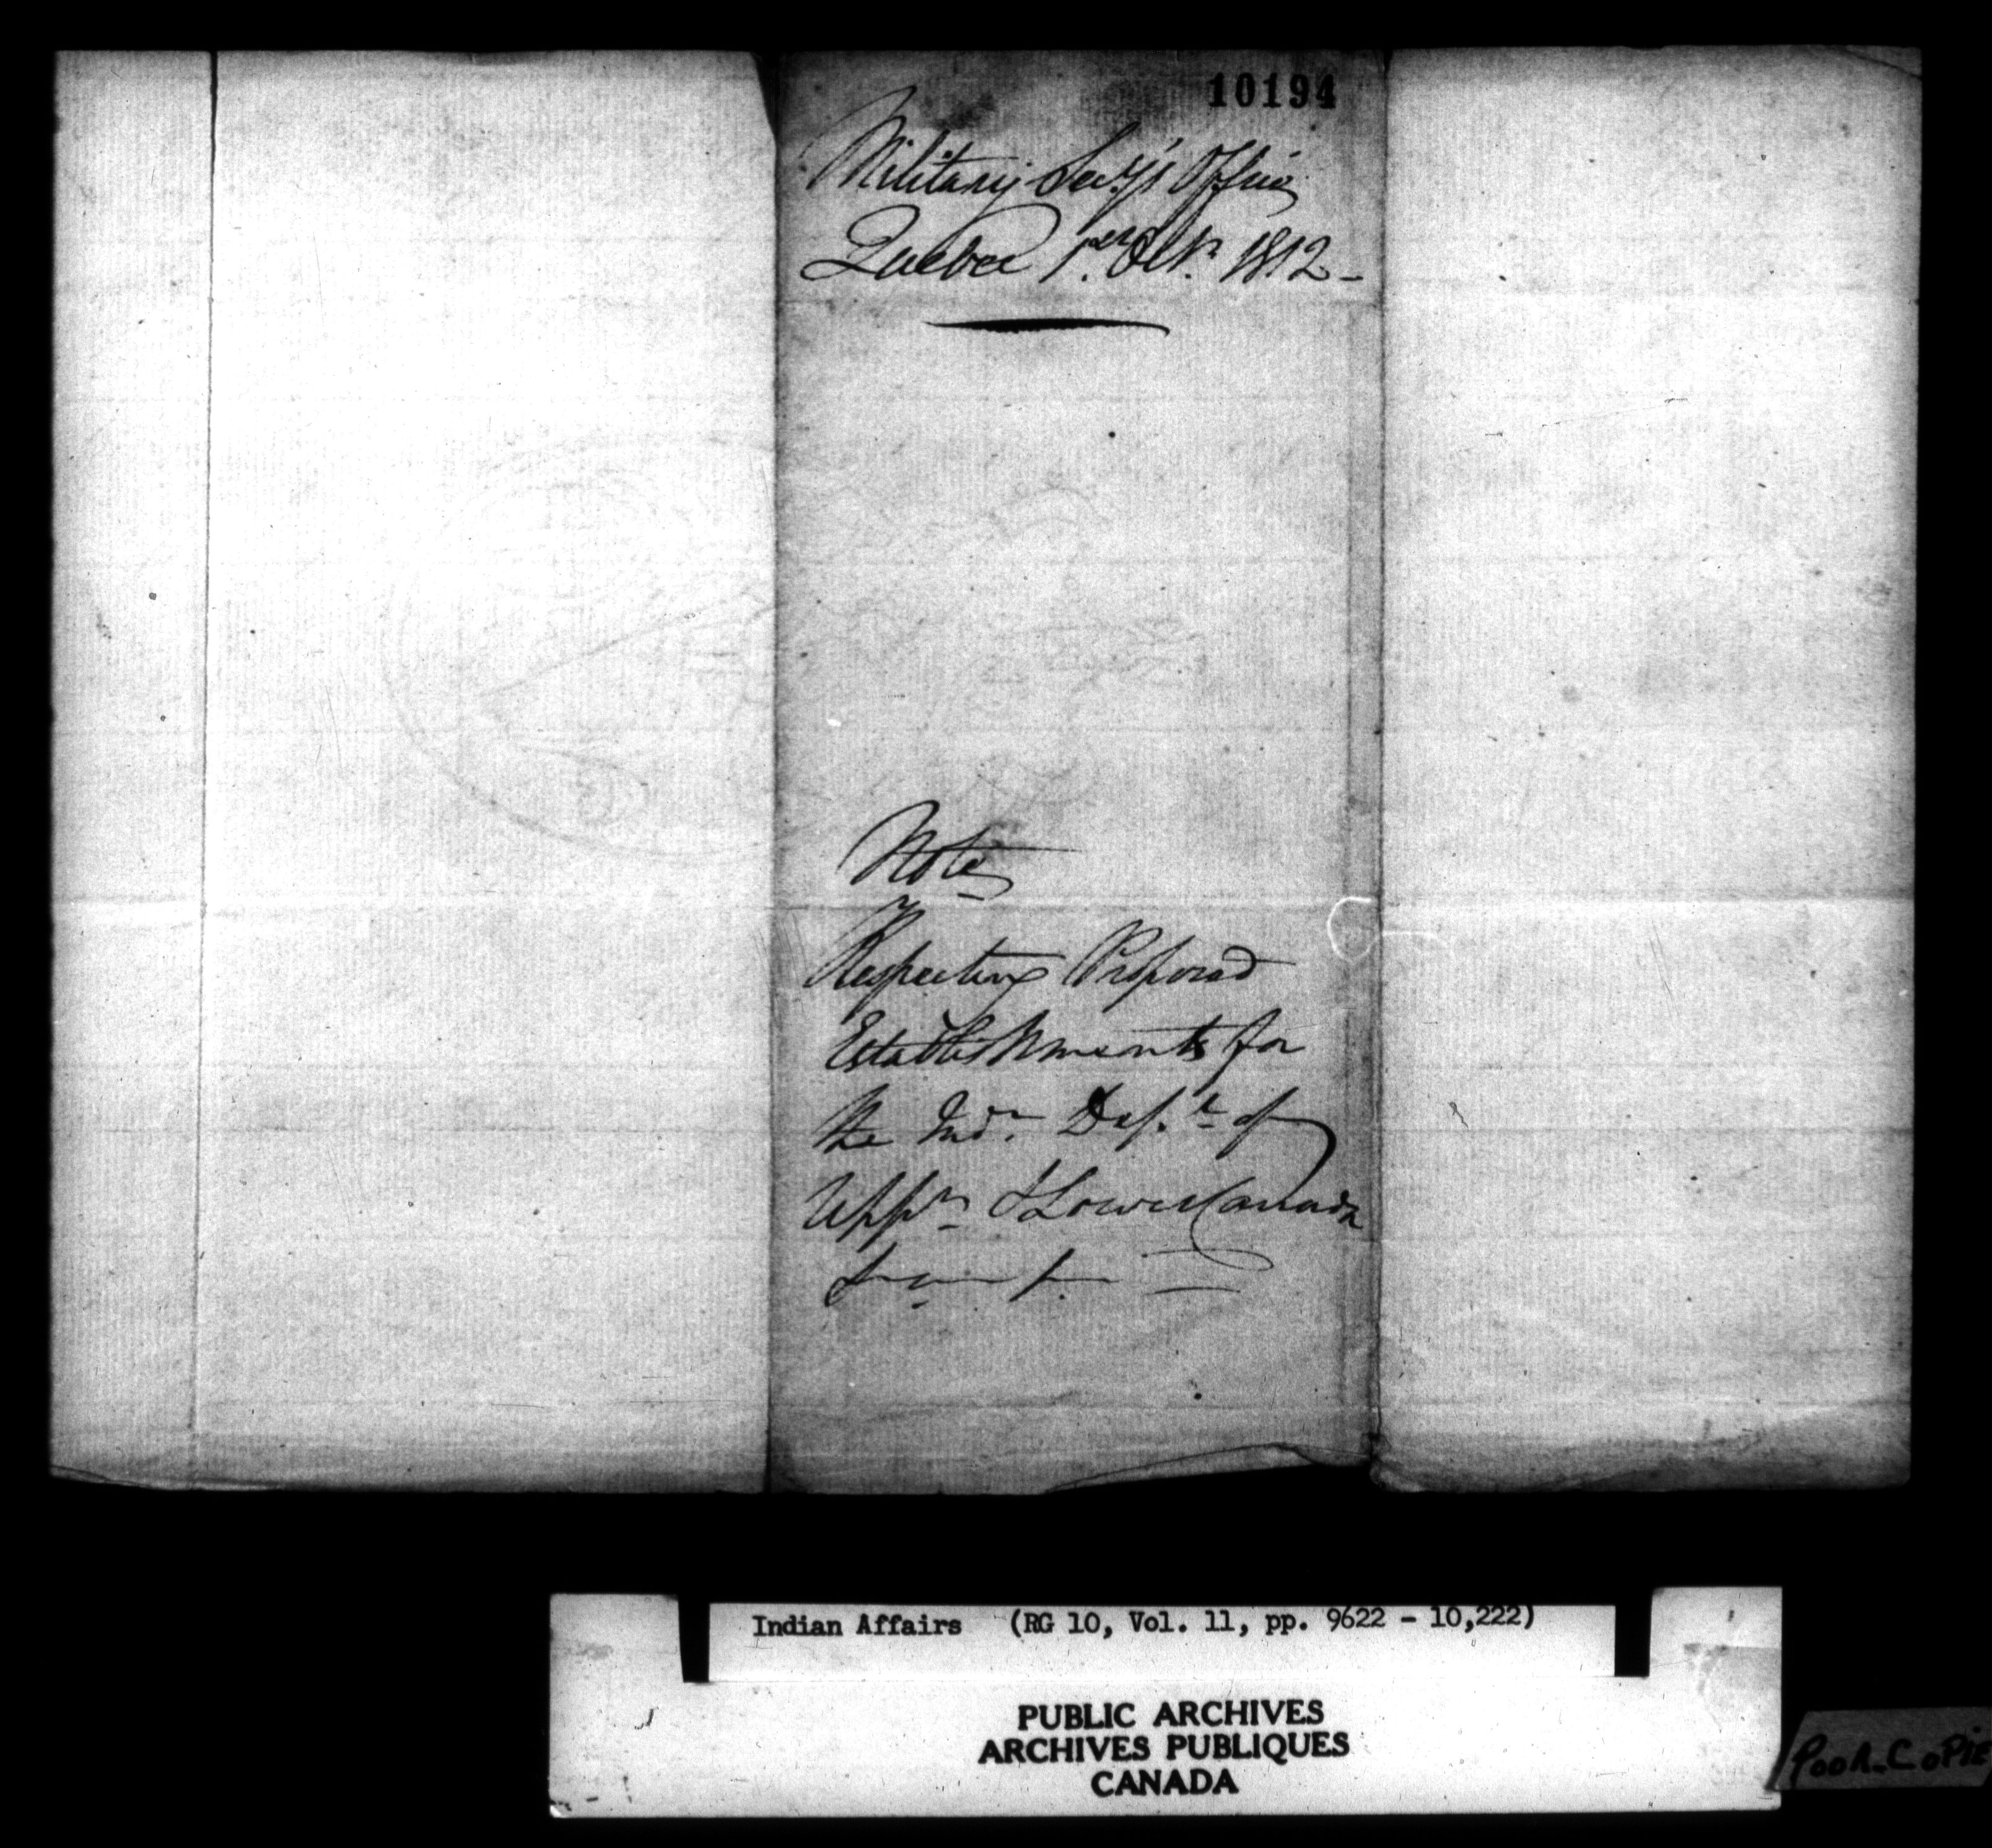 10194
Military Secy's Office
Quebec 1st Octr. 1812 -
Note
Respecting Proposed
Establishments for
the Indn. Dept. of
Uppr. & Lower Canada
Indian Affairs (RG 10, Vol. 11, pp. 9622 - 10,222)
PUBLIC ARCHIVES
ARCHIVES PUBLIQUES
CANADA
POOR_COPIE